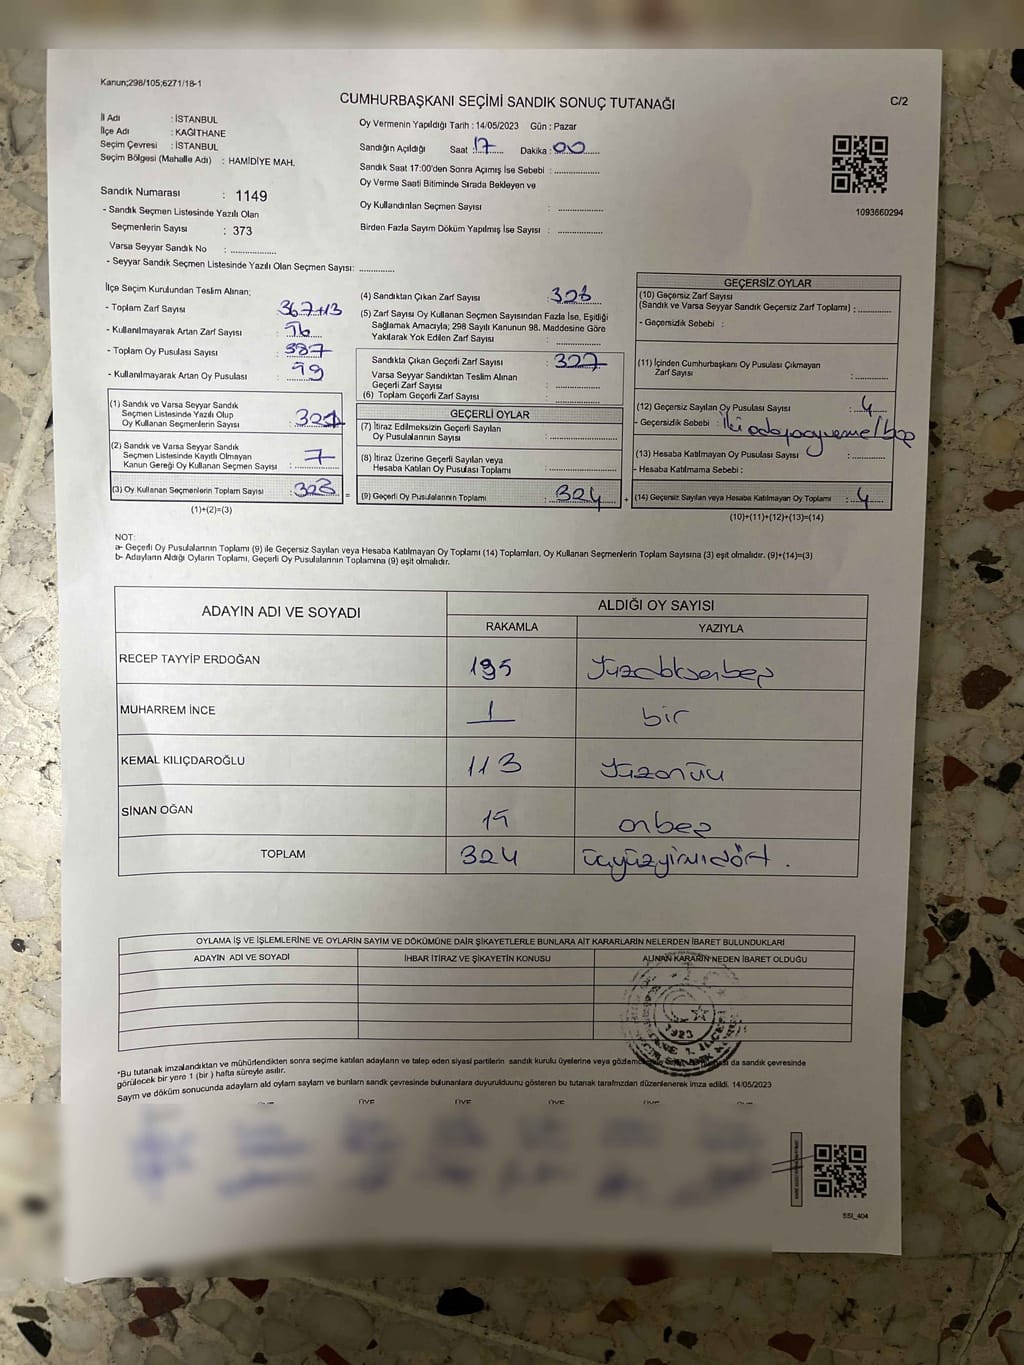 Kanun;298/105;6271/18-1
CUMHURBAŞKANI SEÇİMİ SANDIK SONUÇ TUTANAĞI
C/2
İl Adı : İSTANBUL
İlçe Adı : KAĞITHANE
Seçim Çevresi : İSTANBUL
Seçim Bölgesi (Mahalle Adı) : HAMİDİYE MAH.
Sandık Numarası : 1149
- Sandık Seçmen Listesinde Yazılı Olan
Seçmenlerin Sayısı : 373
Varsa Seyyar Sandık No : ..................
- Seyyar Sandık Seçmen Listesinde Yazılı Olan Seçmen Sayısı: .............
Oy Vermenin Yapıldığı Tarih : 14/05/2023 Gün : Pazar
Sandığın Açıldığı Saat : 17 Dakika : 00
Sandık Saat 17:00'den Sonra Açımış İse Sebebi : ..................
Oy Verme Saati Bitiminde Sırada Bekleyen ve
Oy Kullandırılan Seçmen Sayısı : ..................
Birden Fazla Sayım Döküm Yapılmış İse Sayısı : ..................
1093660294
İlçe Seçim Kurulundan Teslim Alınan;
- Toplam Zarf Sayısı : 367+13
- Kullanılmayarak Artan Zarf Sayısı :
- Toplam Oy Pusulası Sayısı : 387
- Kullanılmayarak Artan Oy Pusulası :
(1) Sandık ve Varsa Seyyar Sandık
Seçmen Listesinde Yazılı Olup
Oy Kullanan Seçmenlerin Sayısı : 321
(2) Sandık ve Varsa Seyyar Sandık
Seçmen Listesinde Kayıtlı Olmayan
Kanun Gereği Oy Kullanan Seçmen Sayısı : 7
(3) Oy Kullanan Seçmenlerin Toplam Sayısı : 328
(1)+(2)=(3)
(4) Sandıktan Çıkan Zarf Sayısı : 328
(5) Zarf Sayısı Oy Kullanan Seçmen Sayısından Fazla İse, Eşitliği
Sağlamak Amacıyla; 298 Sayılı Kanunun 98. Maddesine Göre
Yakılarak Yok Edilen Zarf Sayısı : ..................
Sandıkta Çıkan Geçerli Zarf Sayısı : 327
Varsa Seyyar Sandıktan Teslim Alınan
Geçerli Zarf Sayısı : ..................
(6) Toplam Geçerli Zarf Sayısı : ..................
GEÇERLİ OYLAR
(7) İtiraz Edilmeksizin Geçerli Sayılan
Oy Pusulalarının Sayısı : ..................
(8) İtiraz Üzerine Geçerli Sayılan veya
Hesaba Katılan Oy Pusulası Toplamı : ..................
(9) Geçerli Oy Pusulalarının Toplamı : 324
GEÇERSİZ OYLAR
(10) Geçersiz Zarf Sayısı
(Sandık ve Varsa Seyyar Sandık Geçersiz Zarf Toplamı) : .............
- Geçersizlik Sebebi :
(11) İçinden Cumhurbaşkanı Oy Pusulası Çıkmayan
Zarf Sayısı : .............
(12) Geçersiz Sayılan Oy Pusulası Sayısı : 4
- Geçersizlik Sebebi : İki adaya
(13) Hesaba Katılmayan Oy Pusulası Sayısı : .............
- Hesaba Katılmama Sebebi :
(14) Geçersiz Sayılan veya Hesaba Katılmayan Oy Toplamı : 4
(10)+(11)+(12)+(13)=(14)
NOT:
a- Geçerli Oy Pusulalarının Toplamı (9) ile Geçersiz Sayılan veya Hesaba Katılmayan Oy Toplamı (14) Toplamları, Oy Kullanan Seçmenlerin Toplam Sayısına (3) eşit olmalıdır. (9)+(14)=(3)
b- Adayların Aldığı Oyların Toplamı, Geçerli Oy Pusulalarının Toplamına (9) eşit olmalıdır.
ADAYIN ADI VE SOYADI
ALDIĞI OY SAYISI
RAKAMLA YAZIYLA
RECEP TAYYİP ERDOĞAN 195 Yüzdoksanbeş
MUHARREM İNCE 1 bir
KEMAL KILIÇDAROĞLU 113 Yüzonüç
SİNAN OĞAN 15 onbeş
TOPLAM 324 üçyüzyirmidört.
OYLAMA İŞ VE İŞLEMLERİNE VE OYLARIN SAYIM VE DÖKÜMÜNE DAİR ŞİKAYETLERLE BUNLARA AİT KARARLARIN NELERDEN İBARET BULUNDUKLARI
ADAYIN ADI VE SOYADI İHBAR İTİRAZ VE ŞİKAYETİN KONUSU ALINAN KARARIN NEDEN İBARET OLDUĞU
1923
*Bu tutanak imzalandıktan ve mühürlendikten sonra seçime katılan adayların ve talep eden siyasi partilerin sandık kurulu üyelerine veya da sandık çevresinde
görülecek bir yere 1 (bir ) hafta süreyle asılır.
Sayım ve döküm sonucunda adayların ald oyların sayları ve bunların sandk çevresinde bulunanlara duyurulduunu gösteren bu tutanak tarafmzdan düzenlenerek imza edildi. 14/05/2023
ÜYE ÜYE ÜYE ÜYE ÜYE ÜYE
SSI_404